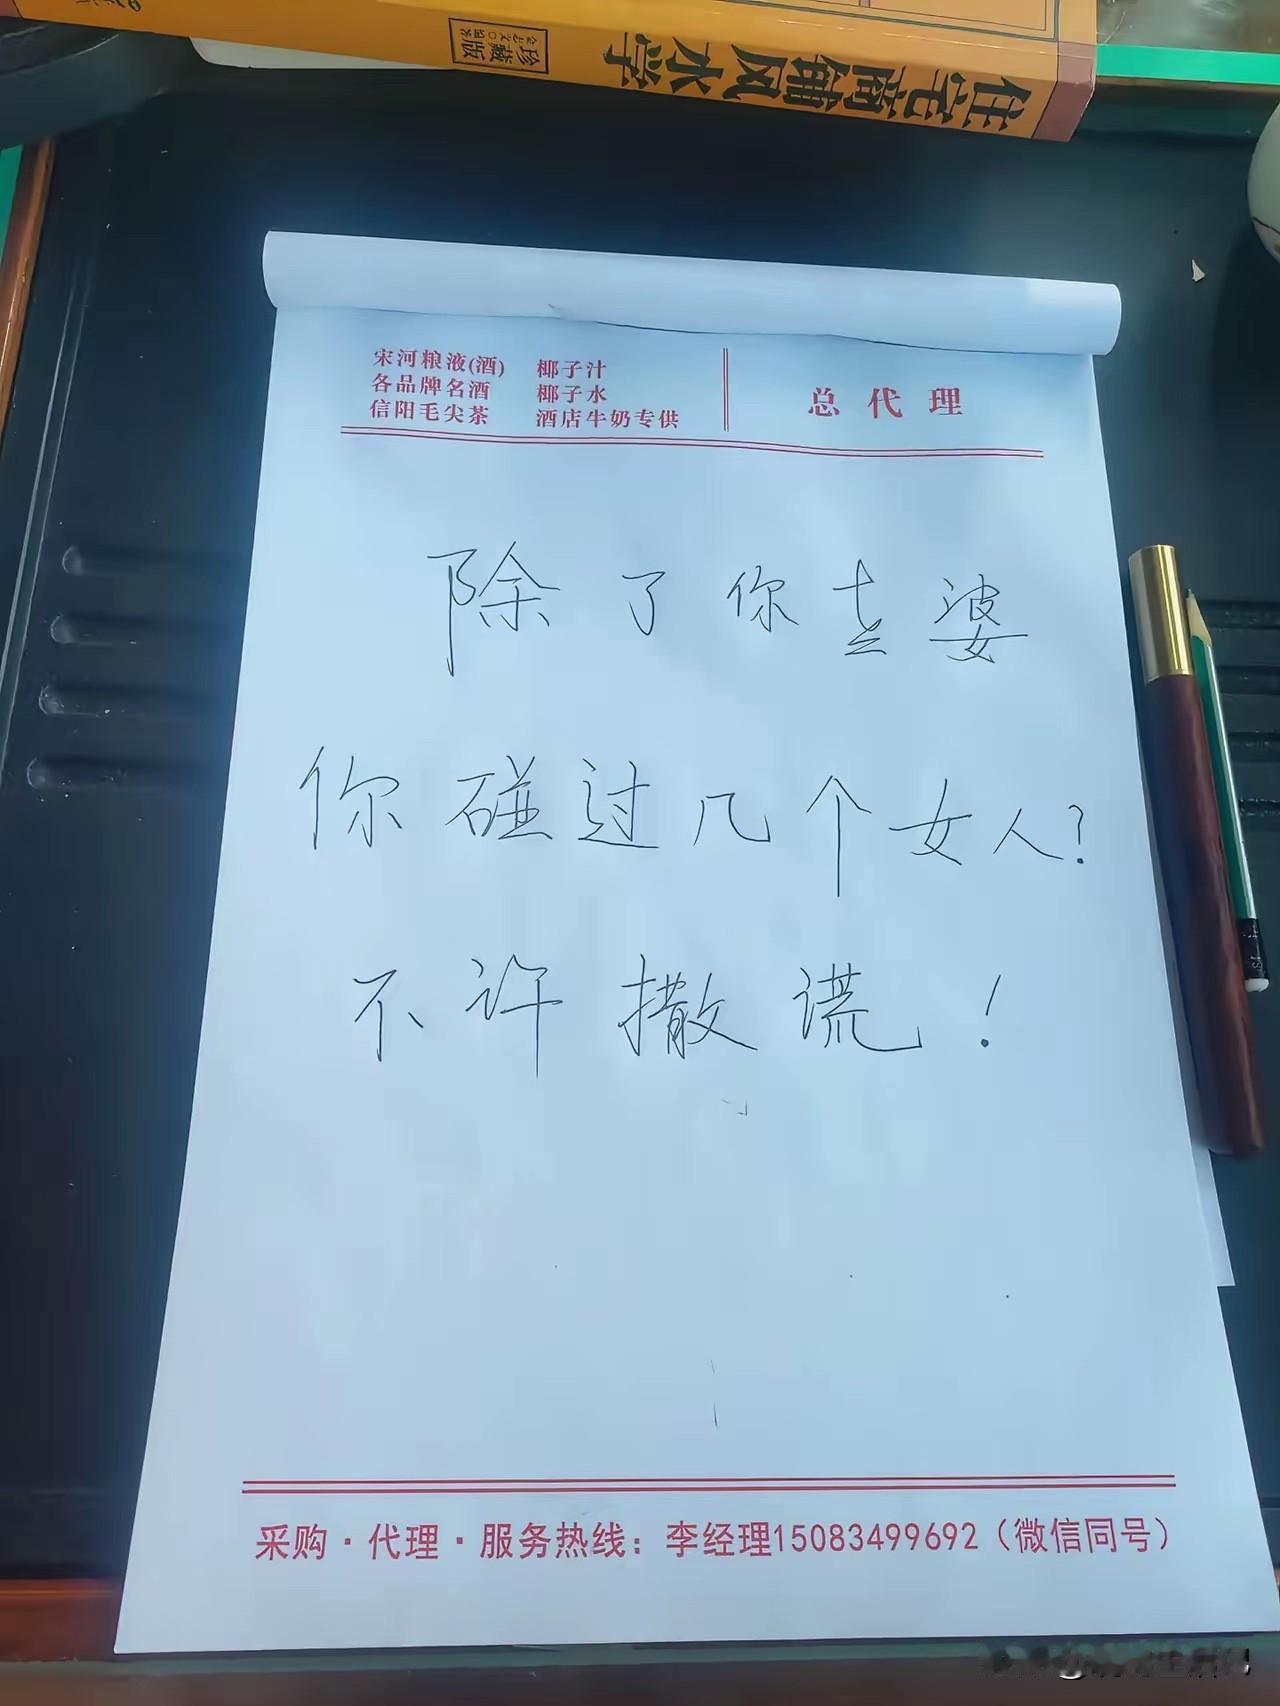 住宅商铺风水学
珍藏版
宋河粮液(酒) 椰子汁
各品牌名酒 椰子水
信阳毛尖茶 酒店牛奶专供
总代理
除了你老婆
你碰过几个女人?
不许撒谎!
采购·代理·服务热线：李经理15083499692（微信同号）